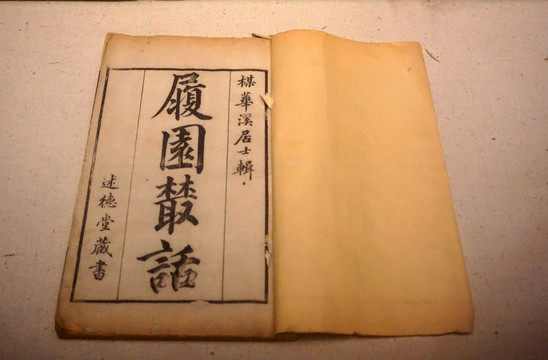 楳華溪居士輯
履園叢話
述德堂藏書